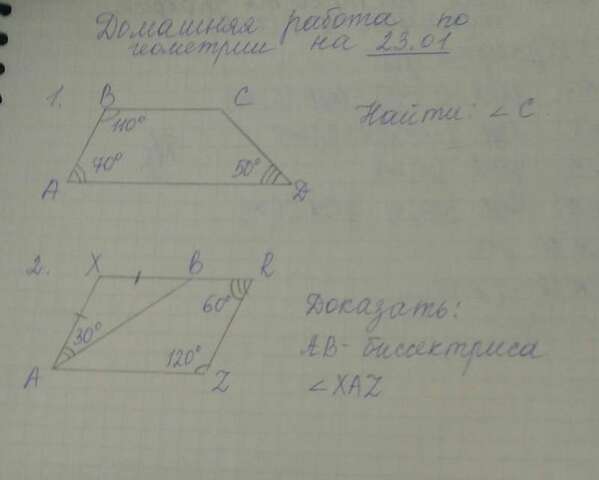 Домашняя работа по
геометрии на 23.01
1.
B
C
110°
Найти: ∠C
70°
50°
A
D
2.
X
B
R
60°
Доказать:
30°
AB - биссектриса
120°
A
Z
∠XAZ